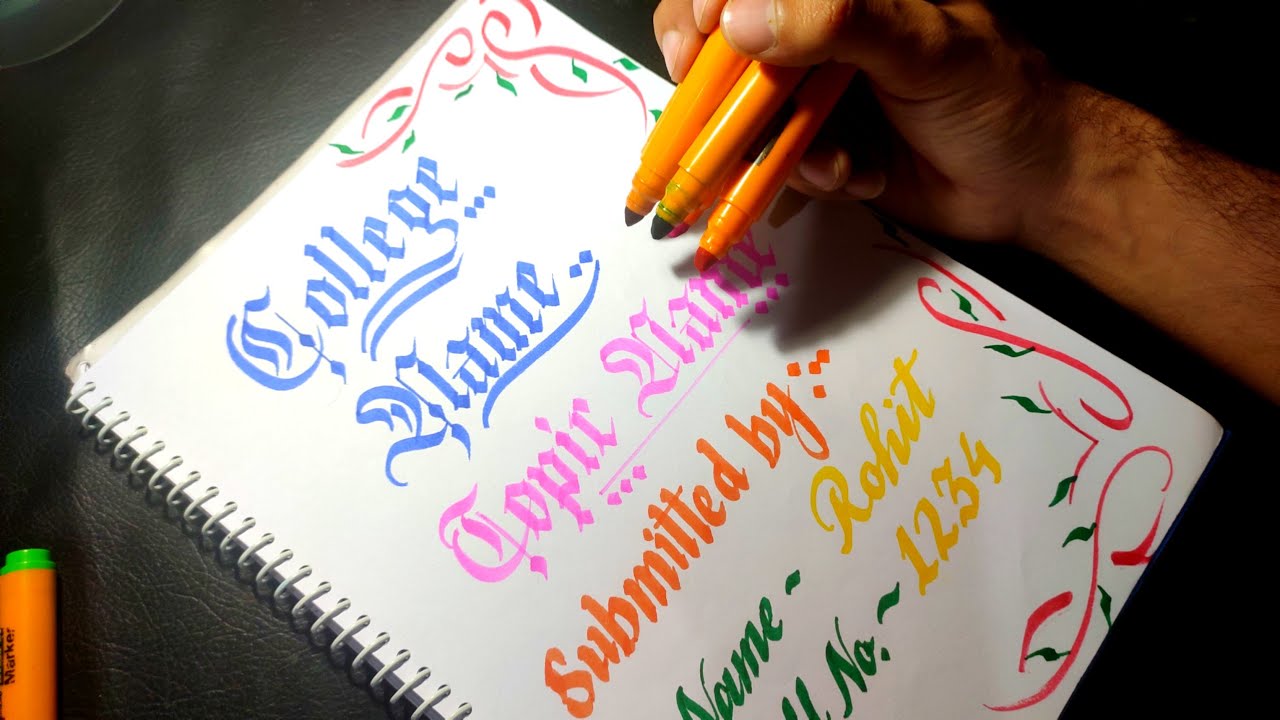 College
Name
Topic Name
Submitted by:
Name - Rohit
No. - 1234
Marker